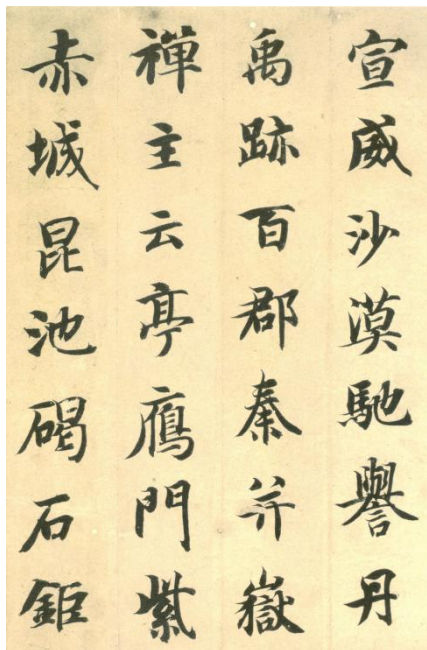 宣威沙漠馳譽丹
禹跡百郡秦并嶽
禪主云亭鴈門紫
赤城昆池碣石鉅